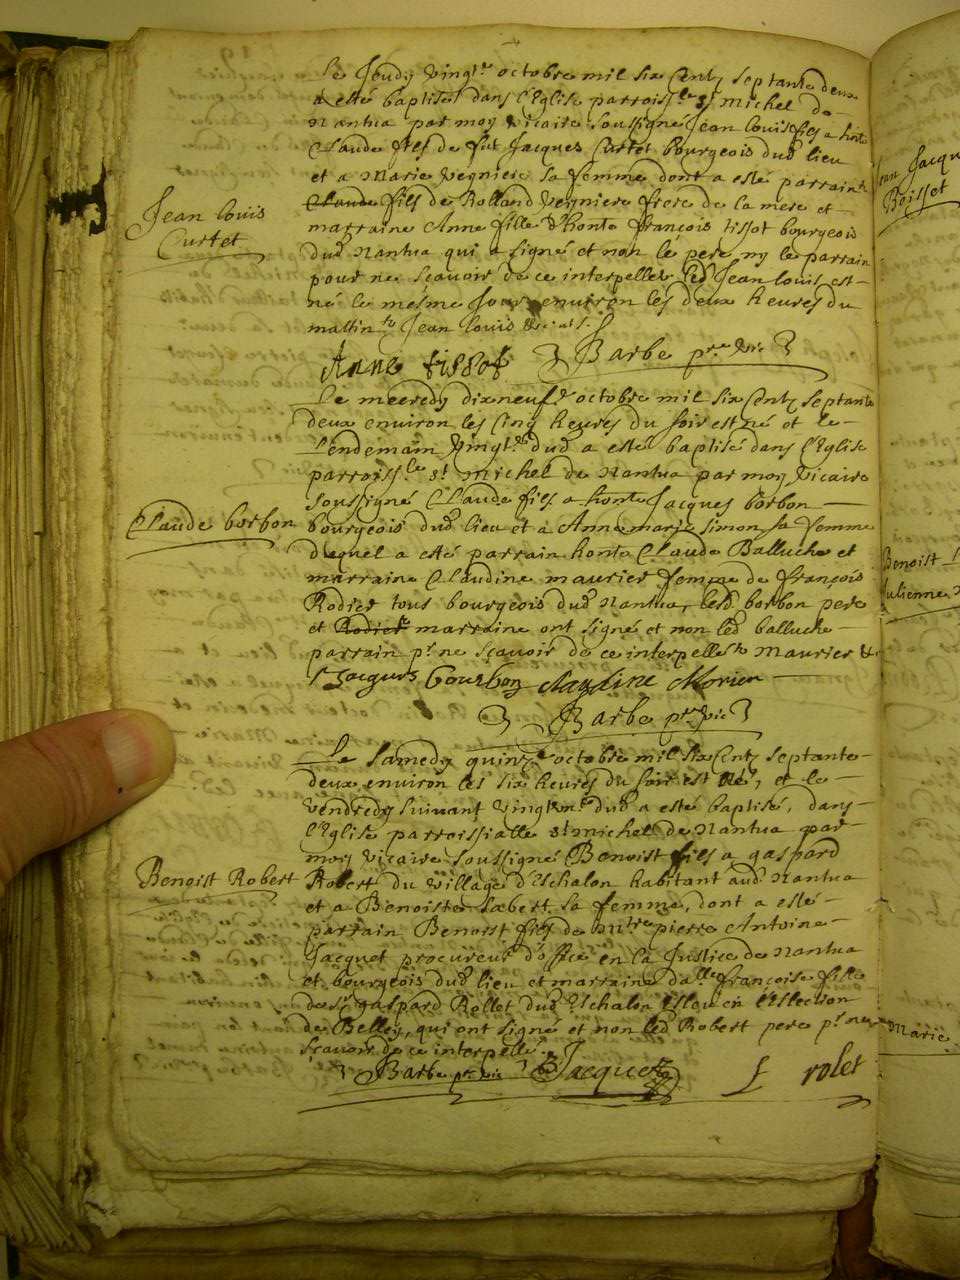 Le Jeudy vingt.e octobre mil six Centz septante deux
a esté baptisé dans l'Eglise parroiss.le st michel de
Nantua par moy vicaire soussigné Jean louis fils a honte
Claude fils de fut Jacques Curtet bourgeois dud lieu
et a Marie Vegniere sa femme dont a esté parrain h.
Claude fils de Rolland Vegniere frere de la mere et
marraine Anne fille d'honte françois tissot bourgeois
dud Nantua qui a signé et non le pere ny le parrain
pour ne sçavoir de ce interpellés led Jean louis est
né le mesme Jour environ les deux heures du
mattin Jean louis
Jean louis
Curtet
Anne tissot Barbe p.re vic
Le mecredy dix neuf.e octobre mil six Centz septante
deux environ les cinq heures du soir est né et le
Lendemain vingt.e dud a esté baptisé dans l'Eglise
parroiss.le st michel de Nantua par moy vicaire
soussigné Claude fils a honte Jacques borbon
Claude borbon
bourgeois dud lieu et a Anne marie simon sa femme
duquel a esté parrain honte Claude Balluche et
marraine Claudine maurier femme de françois
Rodier tous bourgeois dud Nantua, led borbon pere
et Rodier marraine ont signé et non led balluche
parrain p.r ne sçavoir de ce interpellé Maurier &
Jacques bourbon claudine Morier
Barbe p.re vic
Le samedy quinz.e octobre mil six Centz septante
deux environ les six heures du soir est né, et le
vendredy suivant vingt un.e dud a esté baptisé, dans
l'Eglise parroissialle st michel de Nantua par
moy vicaire soussigné Benoist fils a gaspard
Benoist Robert
Robert du village d'Eschalon habitant aud Nantua
et a Benoiste Labert sa femme, dont a esté
parrain Benoist fils de m.tre pierre Antoine
Jacquet procureur d'office en la Justice de Nantua
et bourgeois dud lieu et marraine da.lle françoise fille
de s.r gaspard Rollet dud Eschalon Esleu en l'Eslection
de Belley, qui ont signé et non led Robert pere p.r ne
sçavoir de ce interpellé.
Barbe p.re vic Jacquet f rolet
Jean Jacqu
Boisset
Benoist
Julienne
Marie